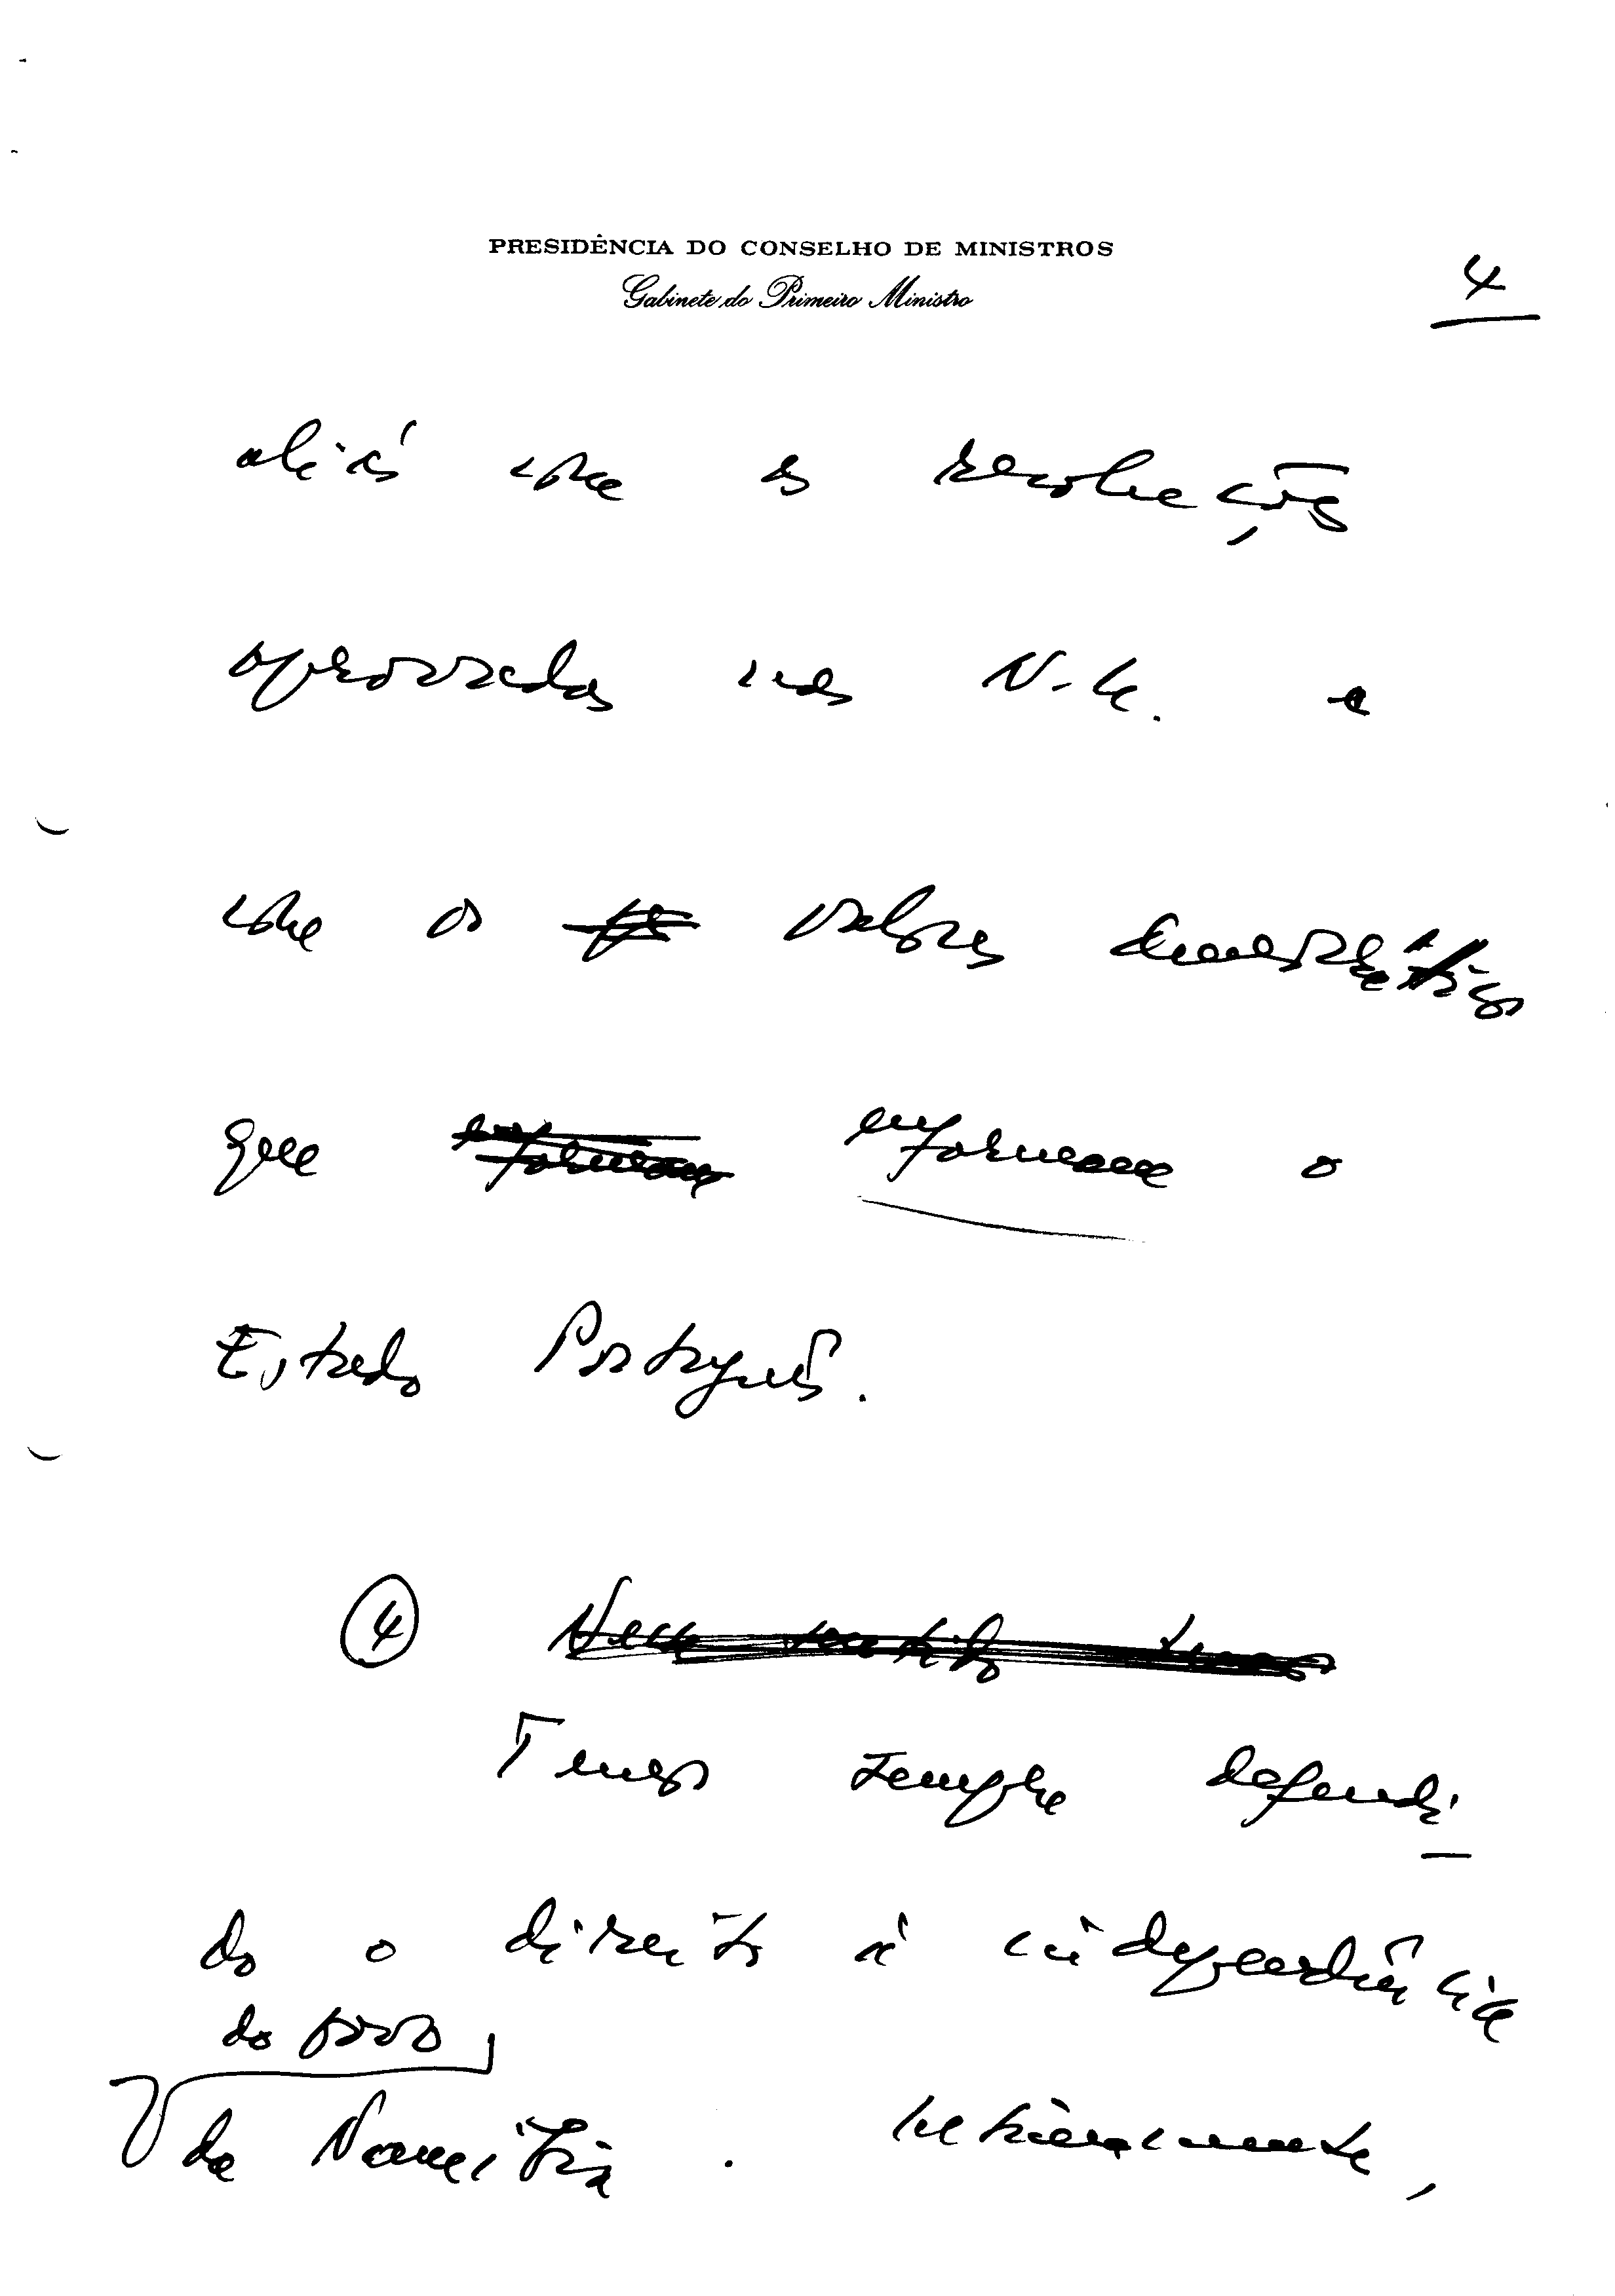 PRESIDÊNCIA DO CONSELHO DE MINISTROS
Gabinete do Primeiro Ministro
4
aliás com as resoluções
aprovadas nas N.U. e
com os valores democráticos
que enformam enformam o
Estado Português.
④ Nesse sentido temos
Temos sempre defendi
do o direito à independência
do povo
da Namíbia. Ultimamente,